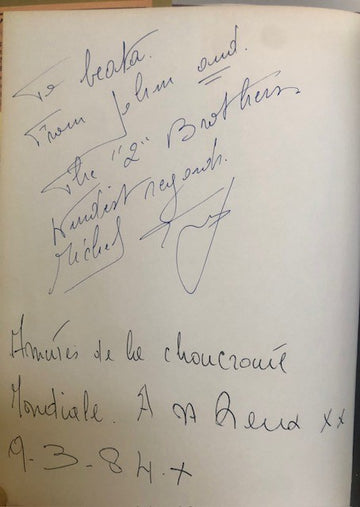 To beata.
From John and.
The "2" Brothers.
Kindist regards.
Michel
de la choucroute
Mondiale. A
9-3-84.x